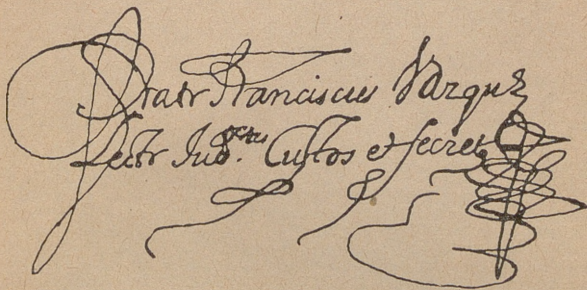 Fratr Franciscus Vazquz
Lectr Jubtus. Custos et secret